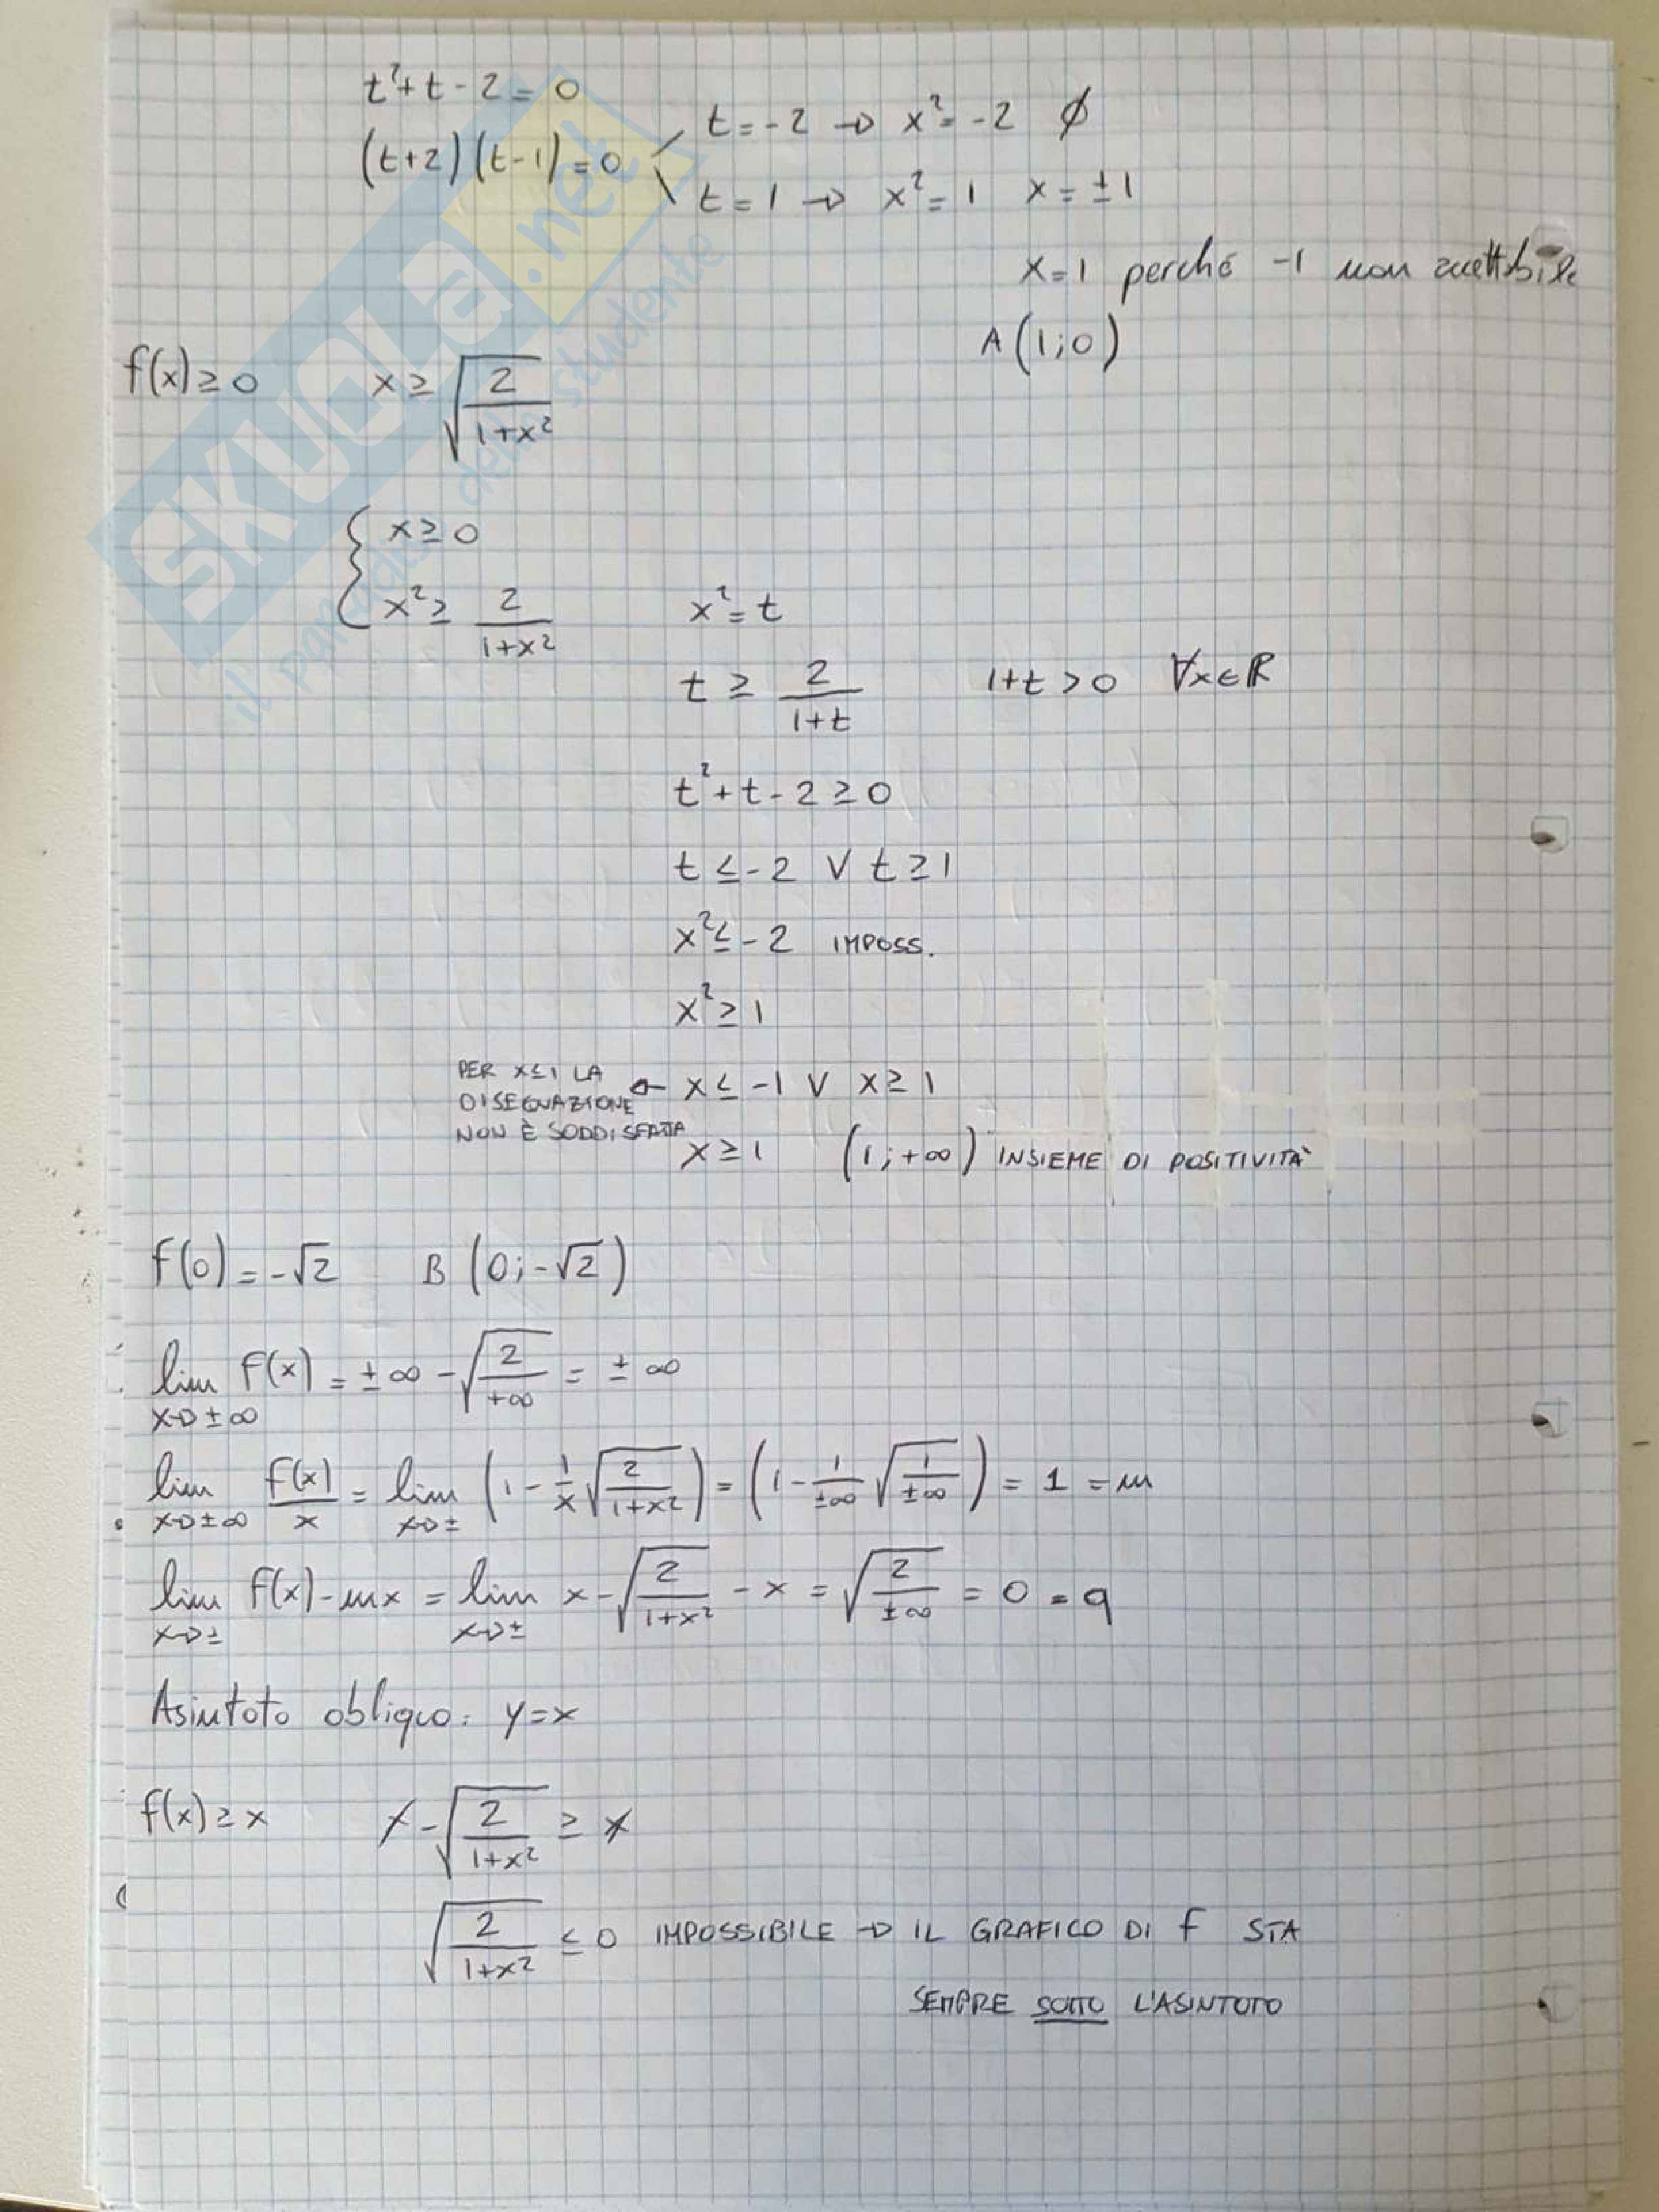 t²+t-2=0
(t+2)(t-1)=0
t=-2 → x²=-2 ∅
t=1 → x²=1 x=±1
x=1 perché -1 non accettabile
A(1;0)
f(x)≥0 x≥√(2/(1+x²))
{ x≥0
x²≥ 2/(1+x²) x²=t
t ≥ 2/(1+t) 1+t>0 ∀x∈R
t²+t-2≥0
t≤-2 ∨ t≥1
x²≤-2 IMPOSS.
x²≥1
PER X≤1 LA
DISEQUAZIONE
NON È SODDISFATTA
← x≤-1 ∨ x≥1
x≥1 (1;+∞) INSIEME DI POSITIVITÀ
f(0)=-√2 B(0;-√2)
lim x→±∞ f(x)=±∞-√(2/+∞)=±∞
lim x→±∞ f(x)/x = lim x→± (1-1/x √(2/(1+x²))) = (1-1/±∞ √(1/±∞)) = 1 = m
lim x→± f(x)-mx = lim x→± x-√(2/(1+x²)) -x = √(2/±∞) = 0 = q
Asintoto obliquo: y=x
f(x)≥x x-√(2/(1+x²)) ≥ x
√(2/(1+x²)) ≤0 IMPOSSIBILE → IL GRAFICO DI f STA
SEMPRE SOTTO L'ASINTOTO
SKUOLA.net
il paradiso dello studente